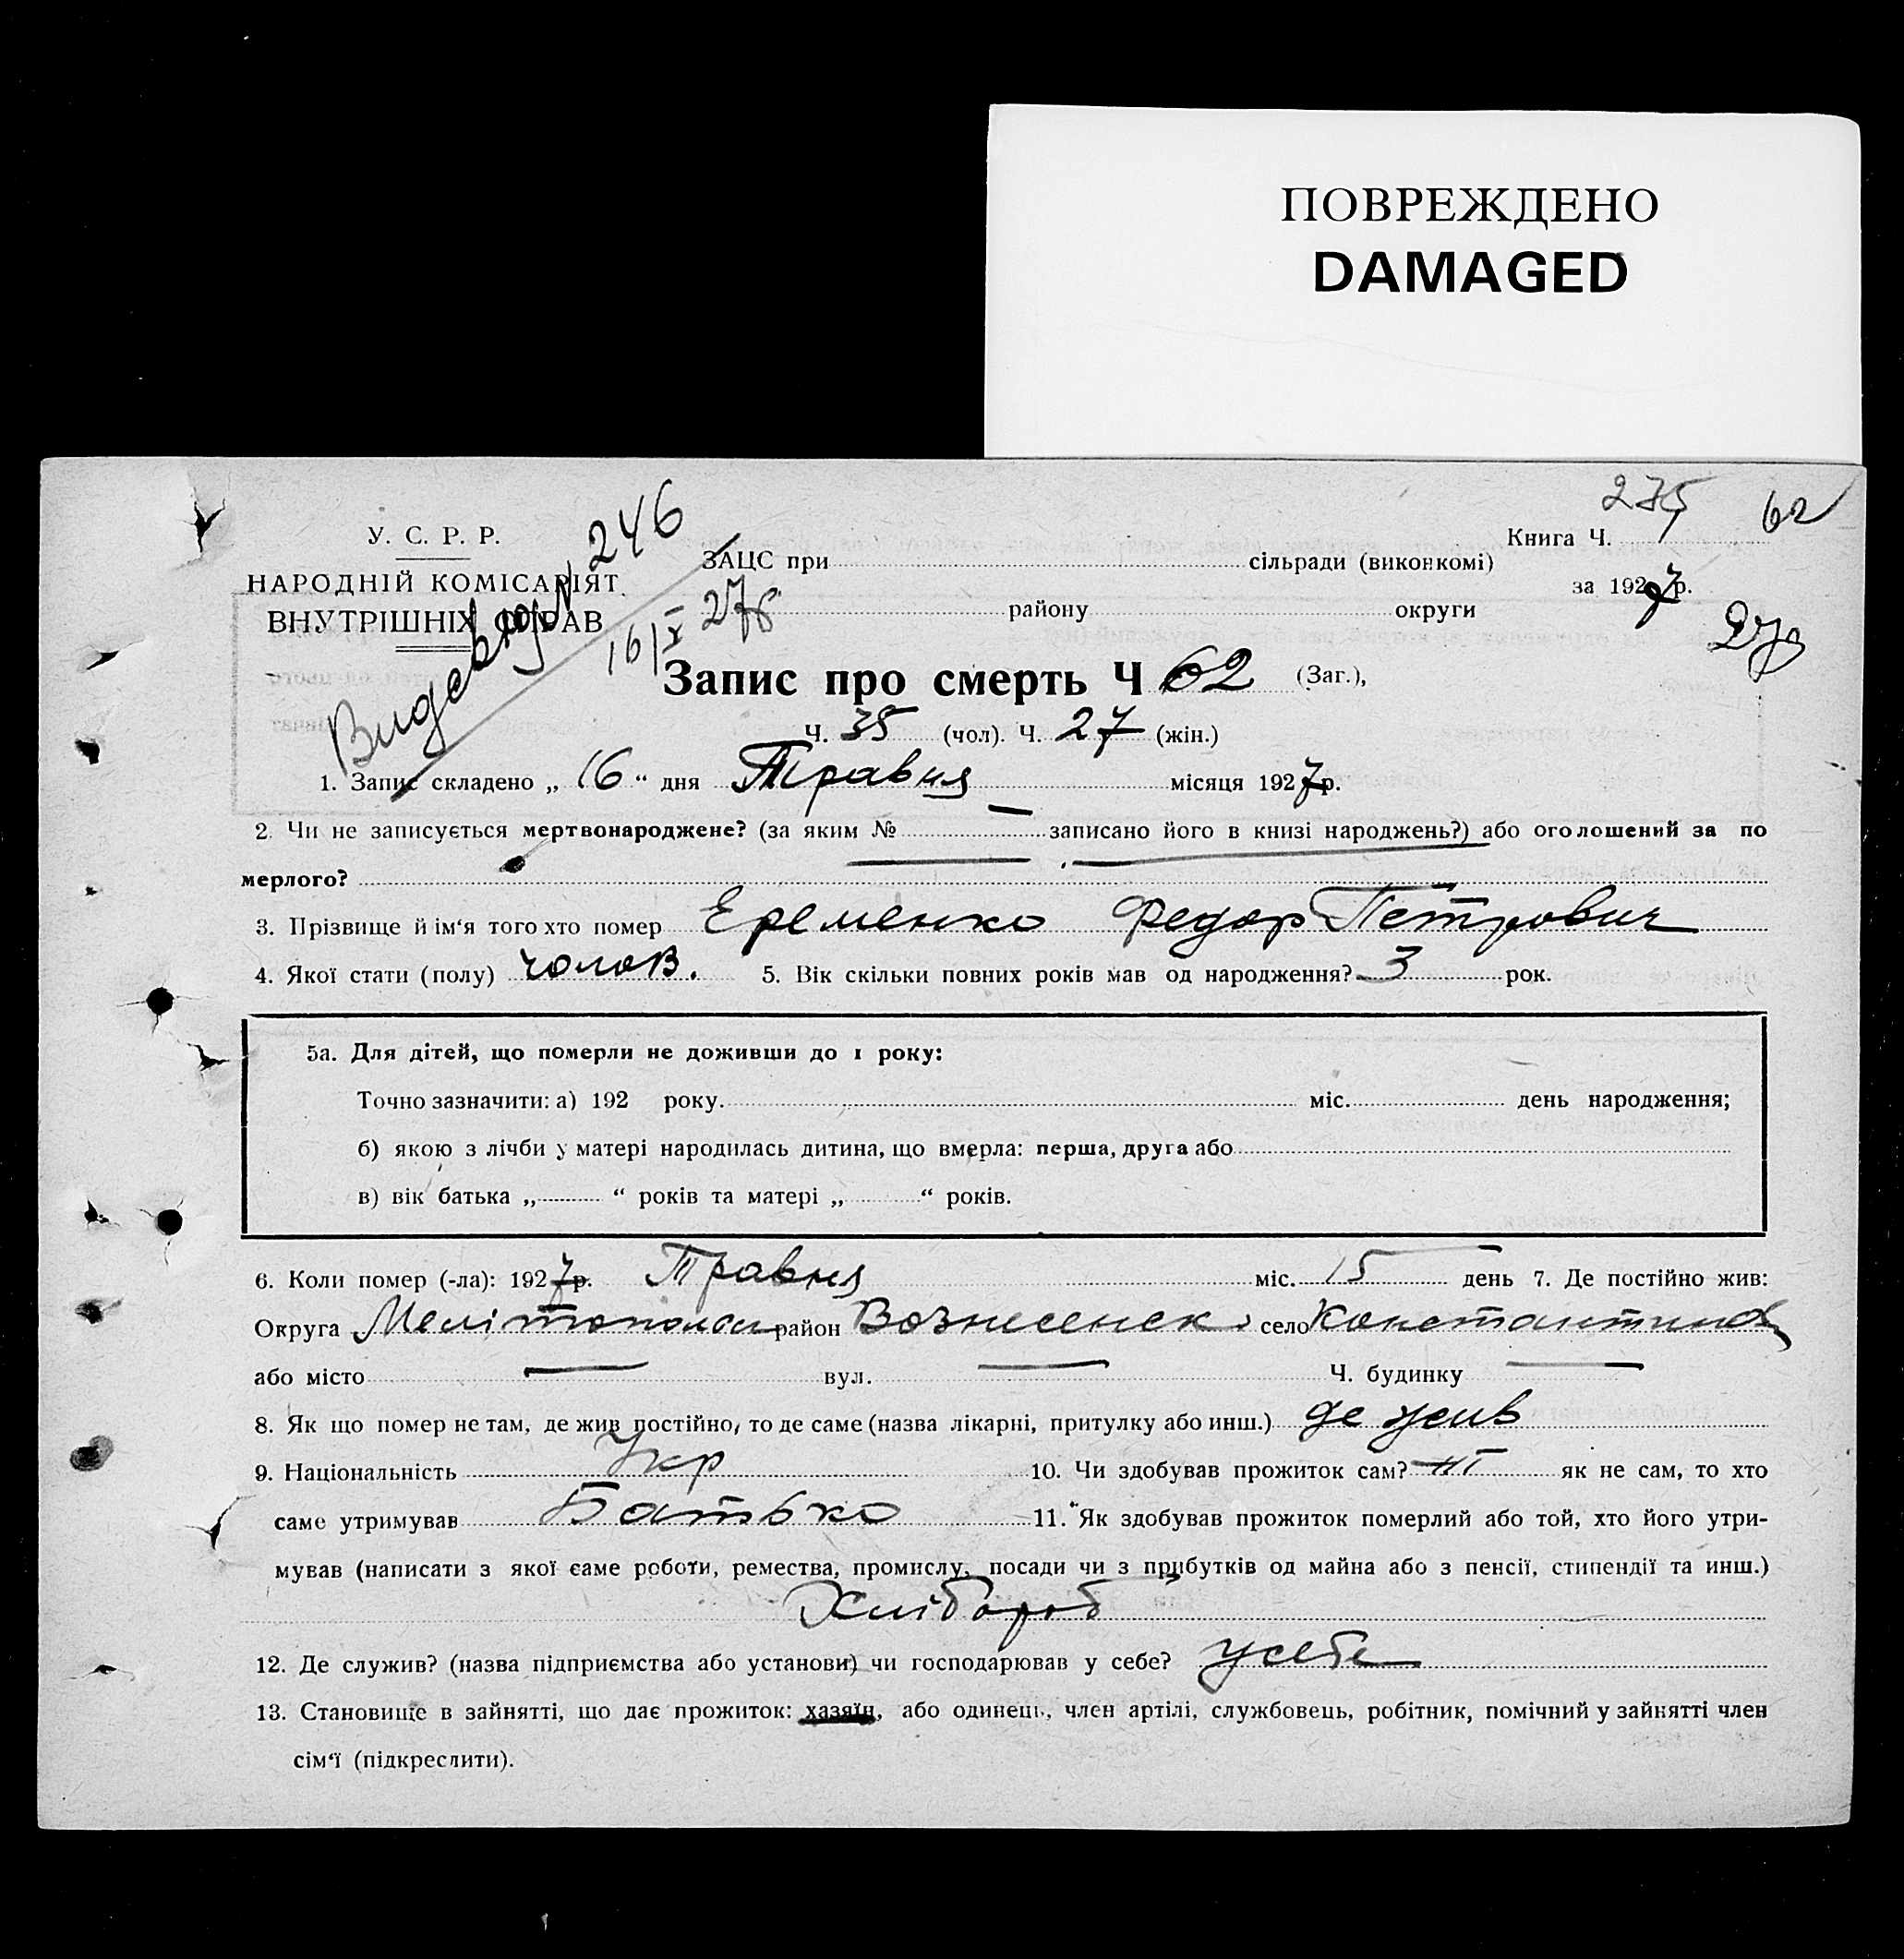 ПОВРЕЖДЕНО
DAMAGED
275 62
У. С. Р. Р.
Книга Ч.
НАРОДНІЙ КОМІСАРІЯТ
ВНУТРІШНІХ СПРАВ
246
16/X 27р.
ЗАЦС при сільради (виконкомі)
за 1927р.
району округи
Запис про смерть Ч 62 (Заг.),
Ч. 35 (чол). Ч. 27 (жін.)
1. Запис складено „ 16 “ дня Травня місяця 1927р.
2. Чи не записується мертвонароджене? (за яким № — записано його в книзі народжень?) або оголошений за по
мерлого?
3. Прізвище й ім‘я того хто помер Еременко Федор Петрович
4. Якої стати (полу) чолов. 5. Вік скільки повних років мав од народження? 3 рок.
5а. Для дітей, що померли не доживши до 1 року:
Точно зазначити: а) 192 року. міс. день народження;
б) якою з лічби у матері народилась дитина, що вмерла: перша, друга або
в) вік батька „ “ років та матері „ “ років.
6. Коли помер (-ла): 1927р. Травня міс. 15 день 7. Де постійно жив:
Округа район Вознесенск село
або місто — вул. — Ч. будинку —
8. Як що помер не там, де жив постійно, то де саме (назва лікарні, притулку або инш.) де жив
9. Національність Укр 10. Чи здобував прожиток сам? як не сам, то хто
саме утримував Батько 11. Як здобував прожиток померлий або той, хто його утри-
мував (написати з якої саме роботи, ремества, промислу, посади чи з прибутків од майна або з пенсії, стипендії та инш.)
Хлібороб
12. Де служив? (назва підприємства або установи) чи господарював у себе? у себе
13. Становище в зайнятті, що дає прожиток: хазяїн, або одинець, член артілі, службовець, робітник, помічний у зайнятті член
сім‘ї (підкреслити).